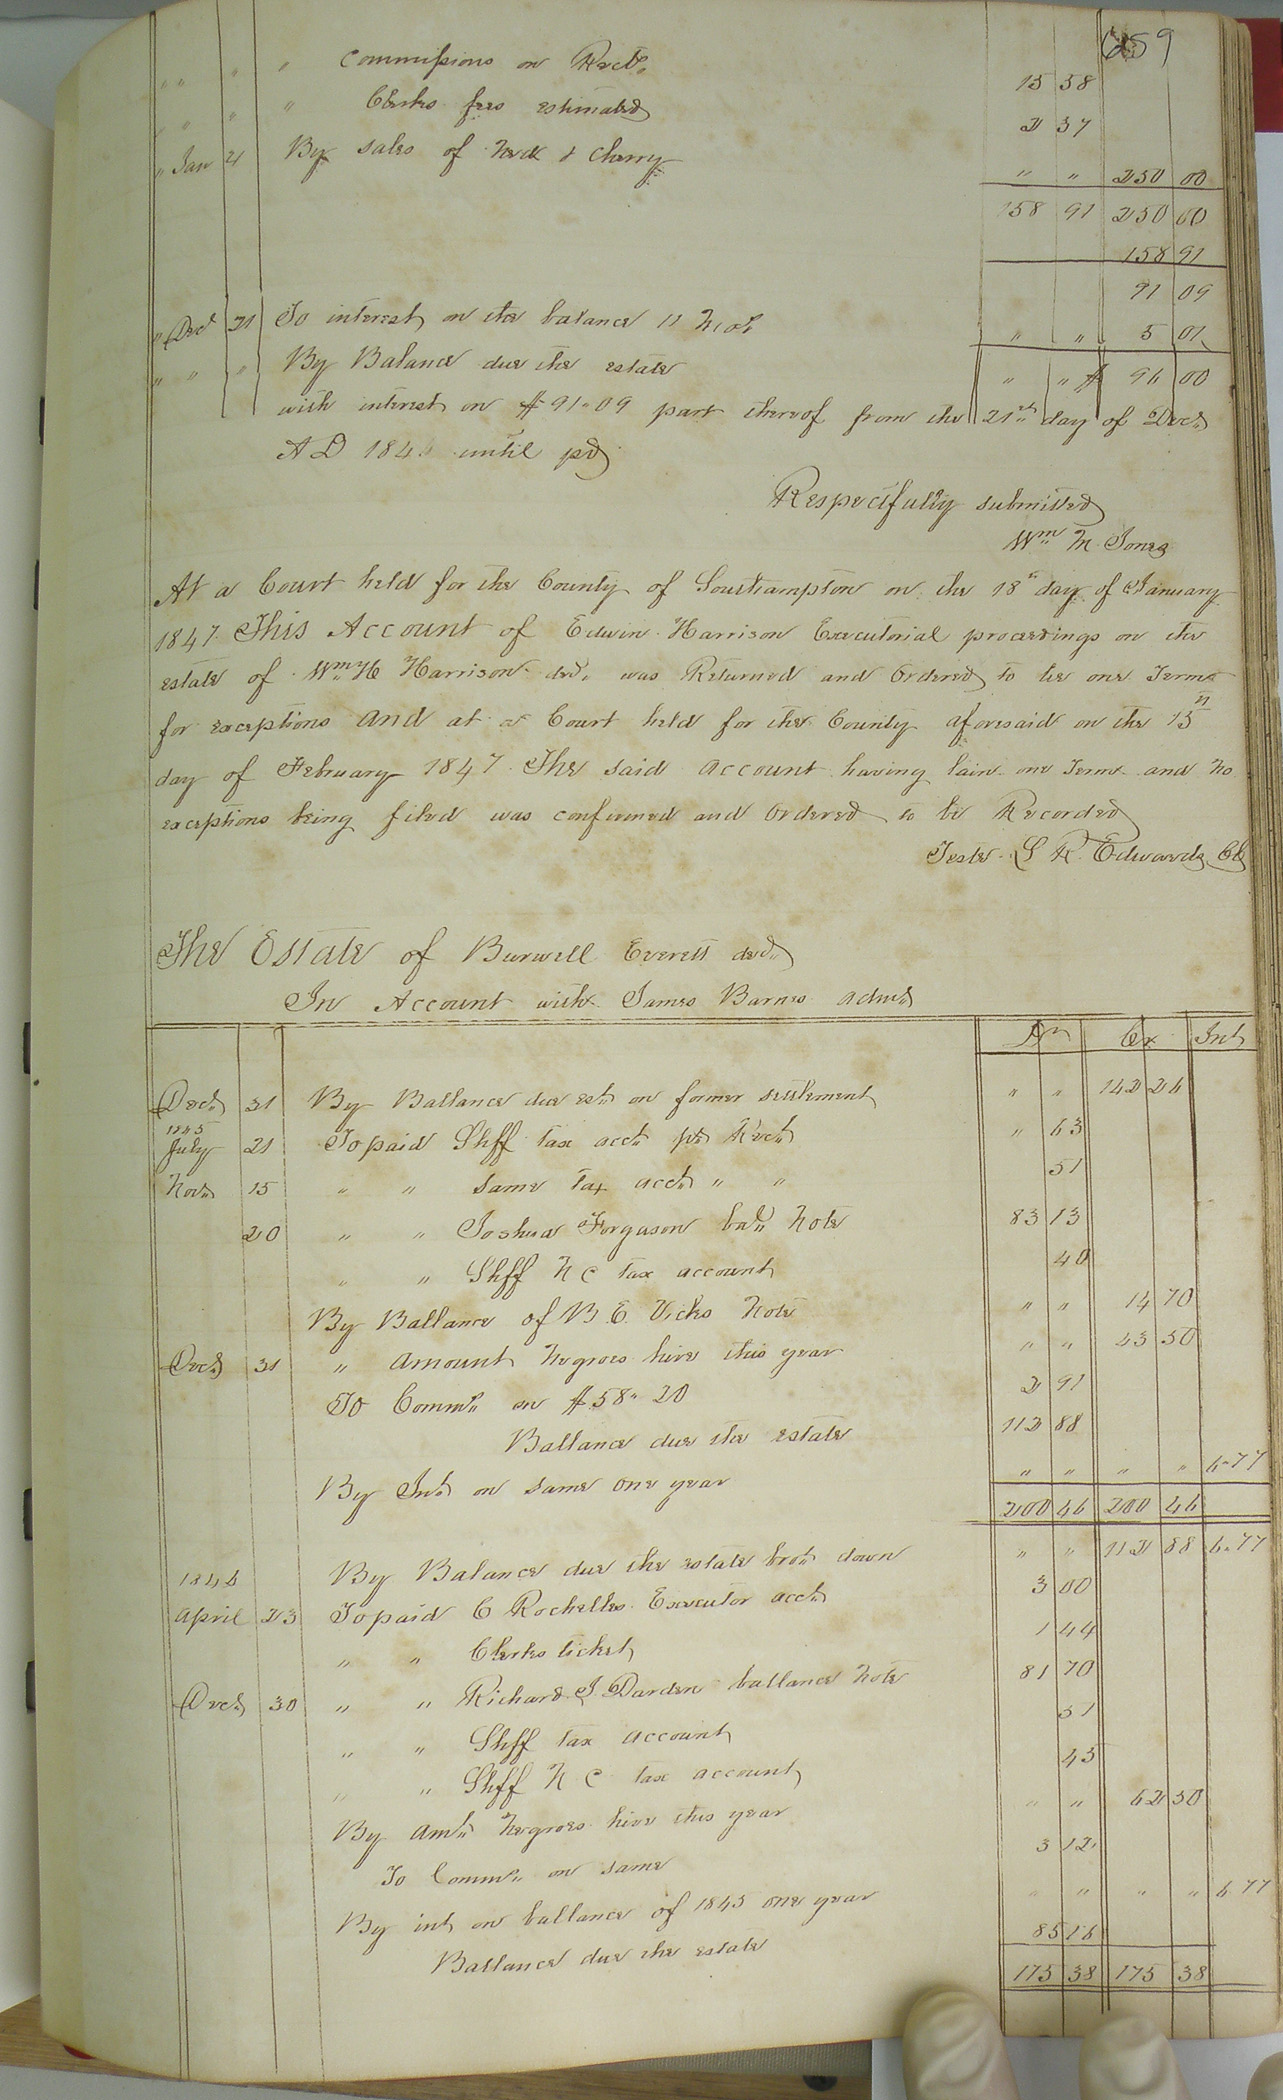 659
" " " " Commissions on Rects. 15 58
" " " " Clerks fees estimated 2 37
" Jan 21 By sales of Ned & Cherry " " 250 00
158 91 250 00
158 91
91 09
" Decr 21 To interest on the balance 11 Mos. " " 5 01
" " " By Balance due the estate " " $ 96 00
with interest on $91.09 part thereof from the 21st day of Decr
A D 184 until pd
Respectfully submitted
Wm M. Jones
At a Court held for the County of Southampton on the 18th day of January
1847. This Account of Edwin Harrison Executorial proceedings on the
estate of Wm H Harrison decd. was Returned and Ordered to lie one Term
for exceptions and at a Court held for the County aforesaid on the 15th
day of February 1847. The said Account having lain one Term and no
exceptions being filed was confirmed and Ordered to be Recorded
Teste. L R Edwards Ck
The Estate of Burwell Everett decd.
In Account with James Barnes admr
Dr Cr Int
Decr. 31 By Ballance due est. on former settlement " " 142 26
1845
July 21 To paid Shff tax acct. pr Rect. " 63
Novr. 15 " " Same tax acct. " " 51
20 " " Joshua Forgason bal. Note 83 13
" " Shff N C tax account 40
By Ballance of B. E. Vicks Note " " 14 70
Decr 31 " Amount Negroes hire this year " " 43 50
To Comms. on $58.20 2 91
Ballance due the estate 112 88
By Int. on same one year " " " " 6.77
200 46 200 46
By Balance due the estate brot. down " " 112 88 6.77
1846
April 23 To paid C Rochelles Executor acct. 3 00
" " Clerks ticket 1 44
Decr 30 " " Richard J. Darden ballance Note 81 70
" " Shff tax account 51
" " Shff N C tax account 45
By Amt. Negroes hire this year " " 62 50
To Comms. on same 3 12
By int on ballance of 1845 one year " " " " 6 77
Ballance due the estate 85 16
175 38 175 38